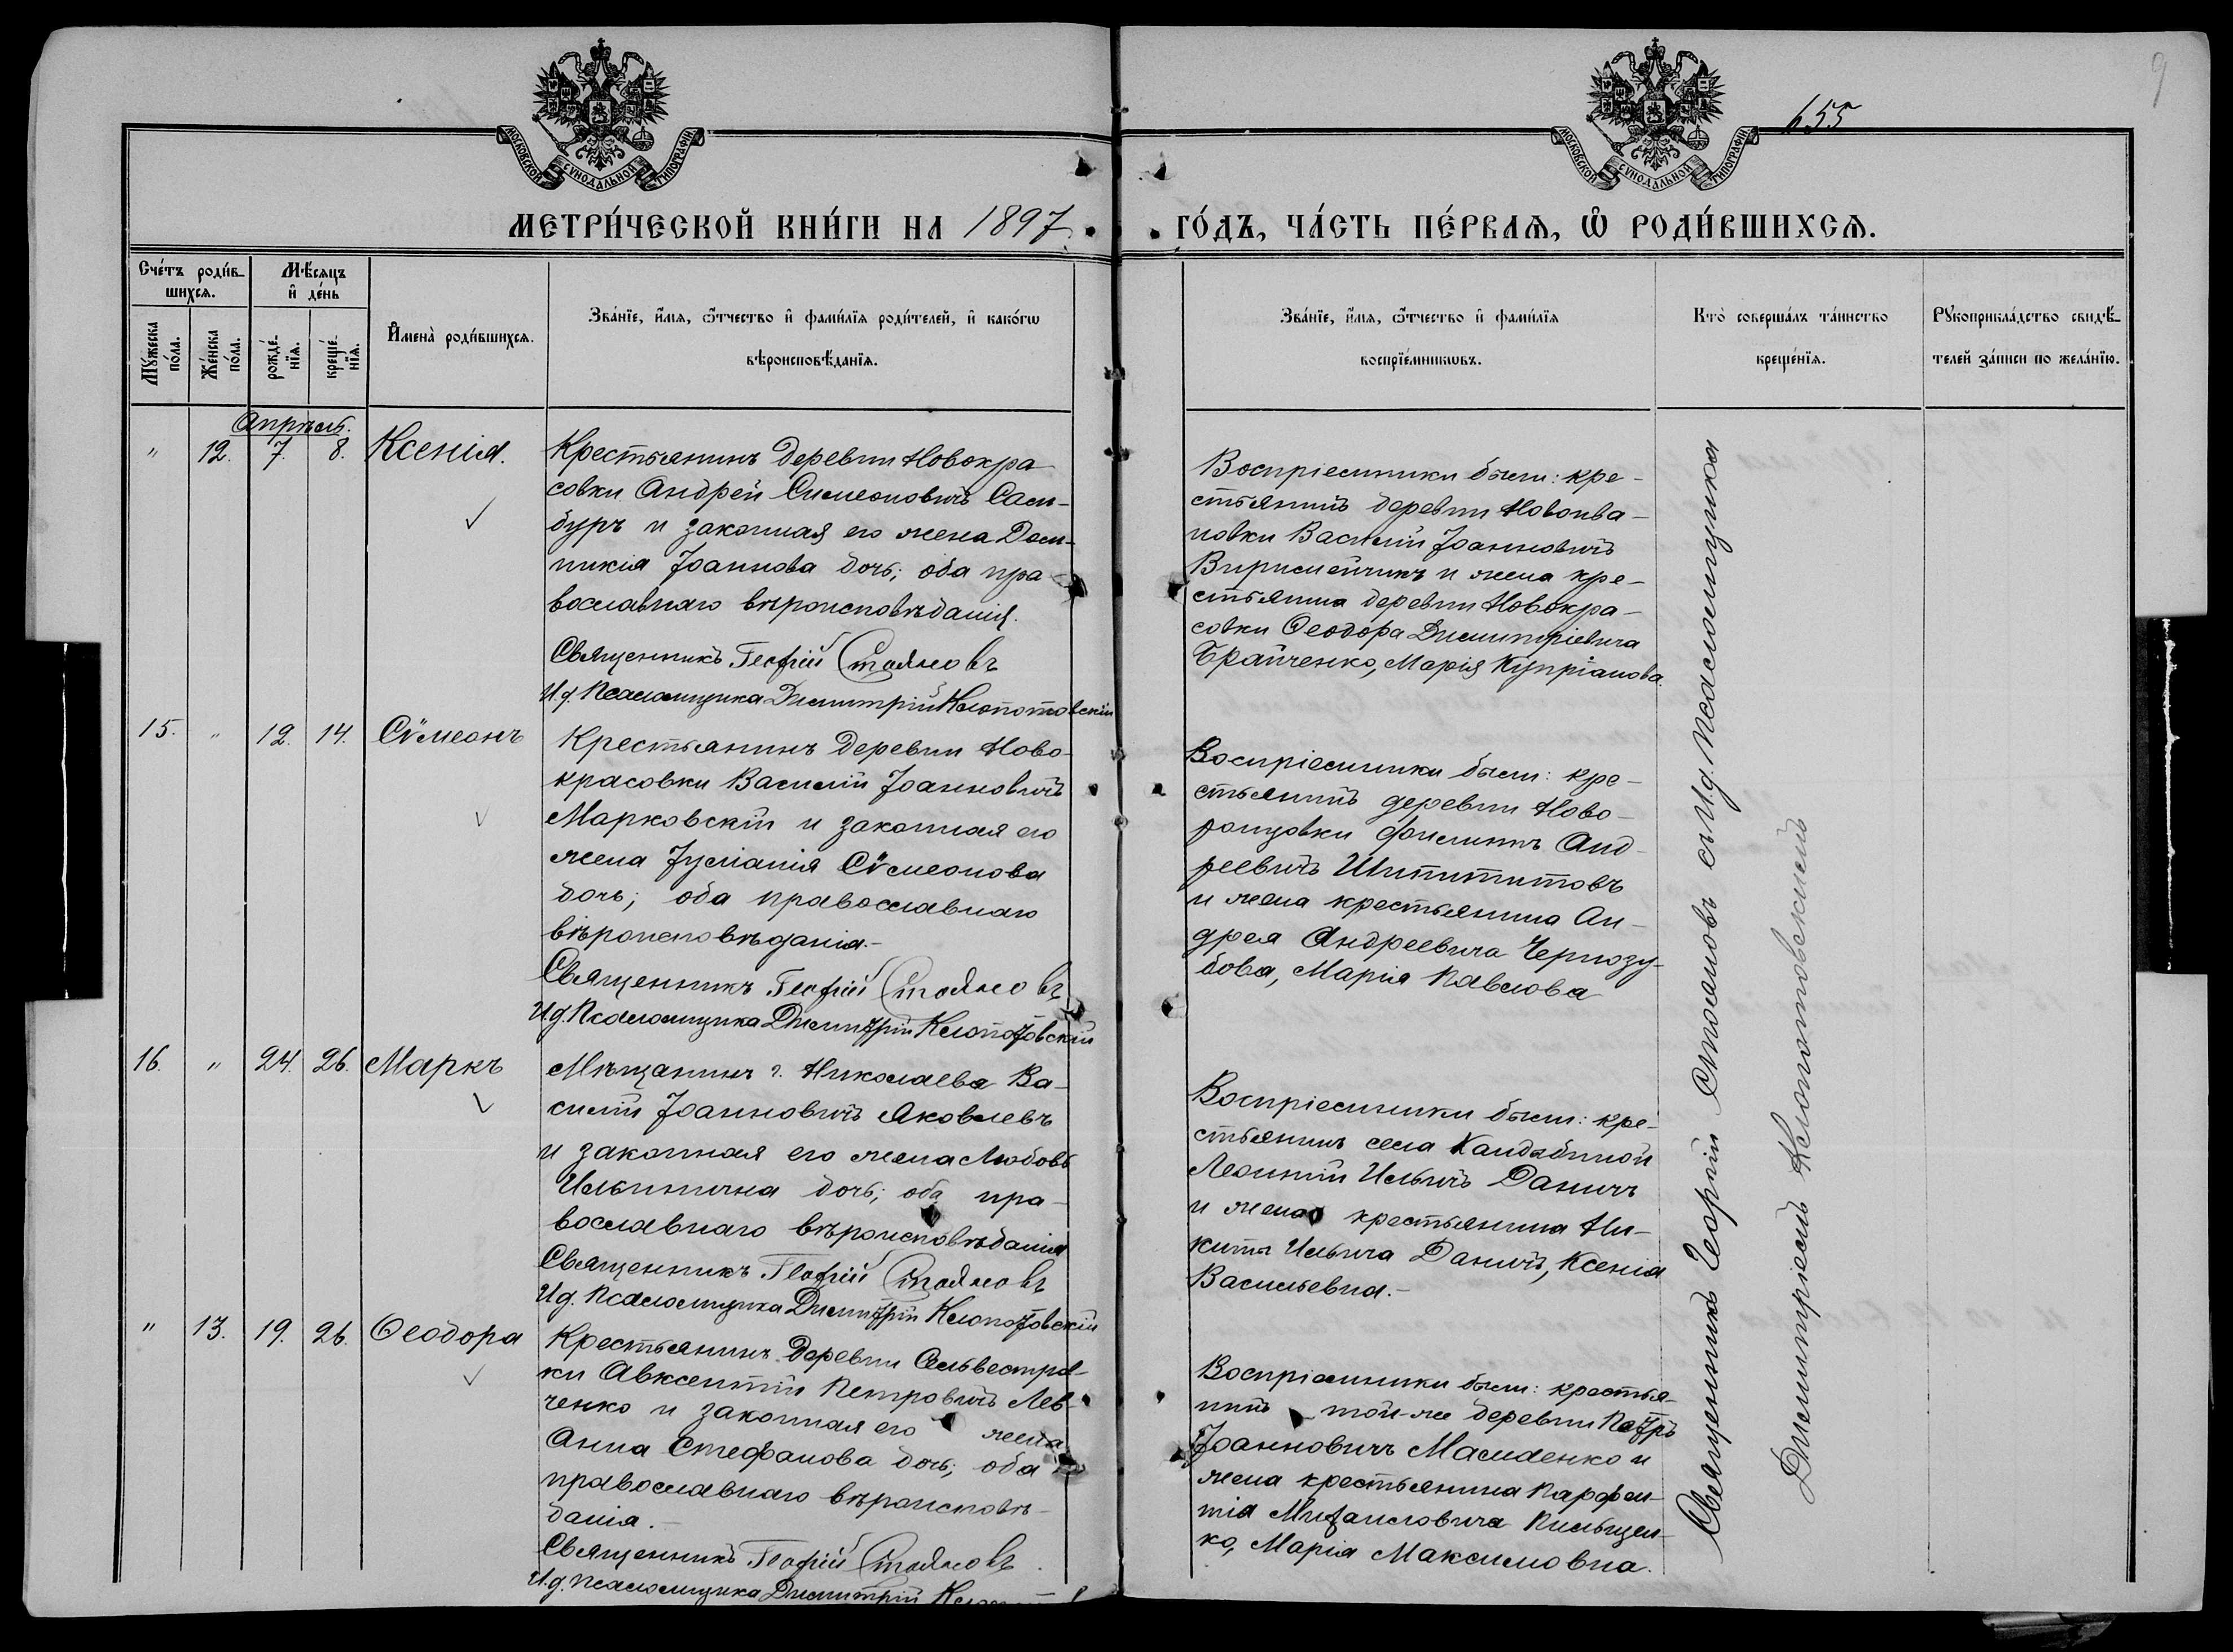 9
655
МОСКОВСКОЙ СѴНОДАЛЬНОЙ ТИПОГРАФІИ
МОСКОВСКОЙ СѴНОДАЛЬНОЙ ТИПОГРАФІИ
МЕТРИ́ЧЕСКОЙ КНИ́ГИ НА 1897
ГО́ДЪ, ЧА́СТЬ ПЕ́РВАЯ, Ѡ РОДИ́ВШИХСЯ.
Сче́тъ роди́в-
шихся.
Мѣ́сяцъ
и де́нь
Му́жеска
по́ла.
Же́нска
по́ла.
рожде́-
нїя.
креще́-
нїя.
Имена̀ роди́вшихся.
Зва́нїе, и́мя, ѻ́тчество и фами́лїя роди́телей, и како́гѡ
вѣроисповѣ́данїя.
Зва́нїе, и́мя, ѻ́тчество и фами́лїя
воспрїе́мникѡвъ.
Кто̀ соверша́лъ та́инство
креще́нїя.
Рꙋкоприкла́дство свидѣ́-
телей за́писи по жела́нїю.
Апрѣль.
" 12. 7. 8. Ксенія.
Крестьянинъ деревни Новокра
совки Андрей Симеоновичъ Сам-
буръ и законная его жена Дом-
никія Іоаннова дочь; оба пра
вославнаго вѣроисповѣданія.
Священникъ Георгій Стояновъ
И.д. Псаломщика Димитрій Клопотовскій
Воспріемники были: кре-
стьянинъ деревни Новоива-
новки Василій Іоанновичъ
и жена кре-
стьянина деревни Новокра-
совки Ѳеодора Димитріевича
Брайченко, Марія Купріанова.
15. " 12. 14. Сѵмеонъ
Крестьянинъ деревни Ново-
красовки Василій Іоанновичъ
Марковскій и законная его
жена Іуліанія Сѵмеонова
дочь; оба православнаго
вѣроисповѣданія.-
Священникъ Георгій Стояновъ
И.д. Псаломщика Димитрій Клопотовскій
Воспріемники были: кре-
стьянинъ деревни Ново-
рощовки Филиппъ Анд-
реевичъ
и жена крестьянина Ан-
дрея Андреевича Чернозу-
бова, Марія Павлова
16. " 24. 26. Маркъ
Мѣщанинъ г. Николаева Ва-
силій Іоанновичъ Яковлевъ
и законная его жена Любовь
Ильинична дочь; оба пра-
вославнаго вѣроисповѣданія
Священникъ Георгій Стояновъ
И.д. Псаломщика Димитрій Клопотовскій
Воспріемники были: кре-
стьянинъ села Кандыбиной
Леонтій Ильичъ Даничъ
и жена крестьянина Ни-
киты Ильича Даничъ, Ксенія
Васильевна.-
" 13. 19. 26. Ѳеодора
Крестьянинъ деревни Сельвестров-
ки Авксентій Петровичъ Лев-
ченко и законная его жена
Анна Стефанова дочь; оба
православнаго вѣроисповѣ-
данія.-
Священникъ Георгій Стояновъ
И.д. Псаломщика Димитрій
Воспріемники были: крестья-
нинъ той-же деревни Петръ
Іоанновичъ Масленко и
жена крестьянина Парфен-
тія Михаиловича Пильщен-
ко, Марія Максимовна.
Священникъ Георгій Стояновъ съ И.д. Псаломщика
Димитріемъ Клопотовскимъ